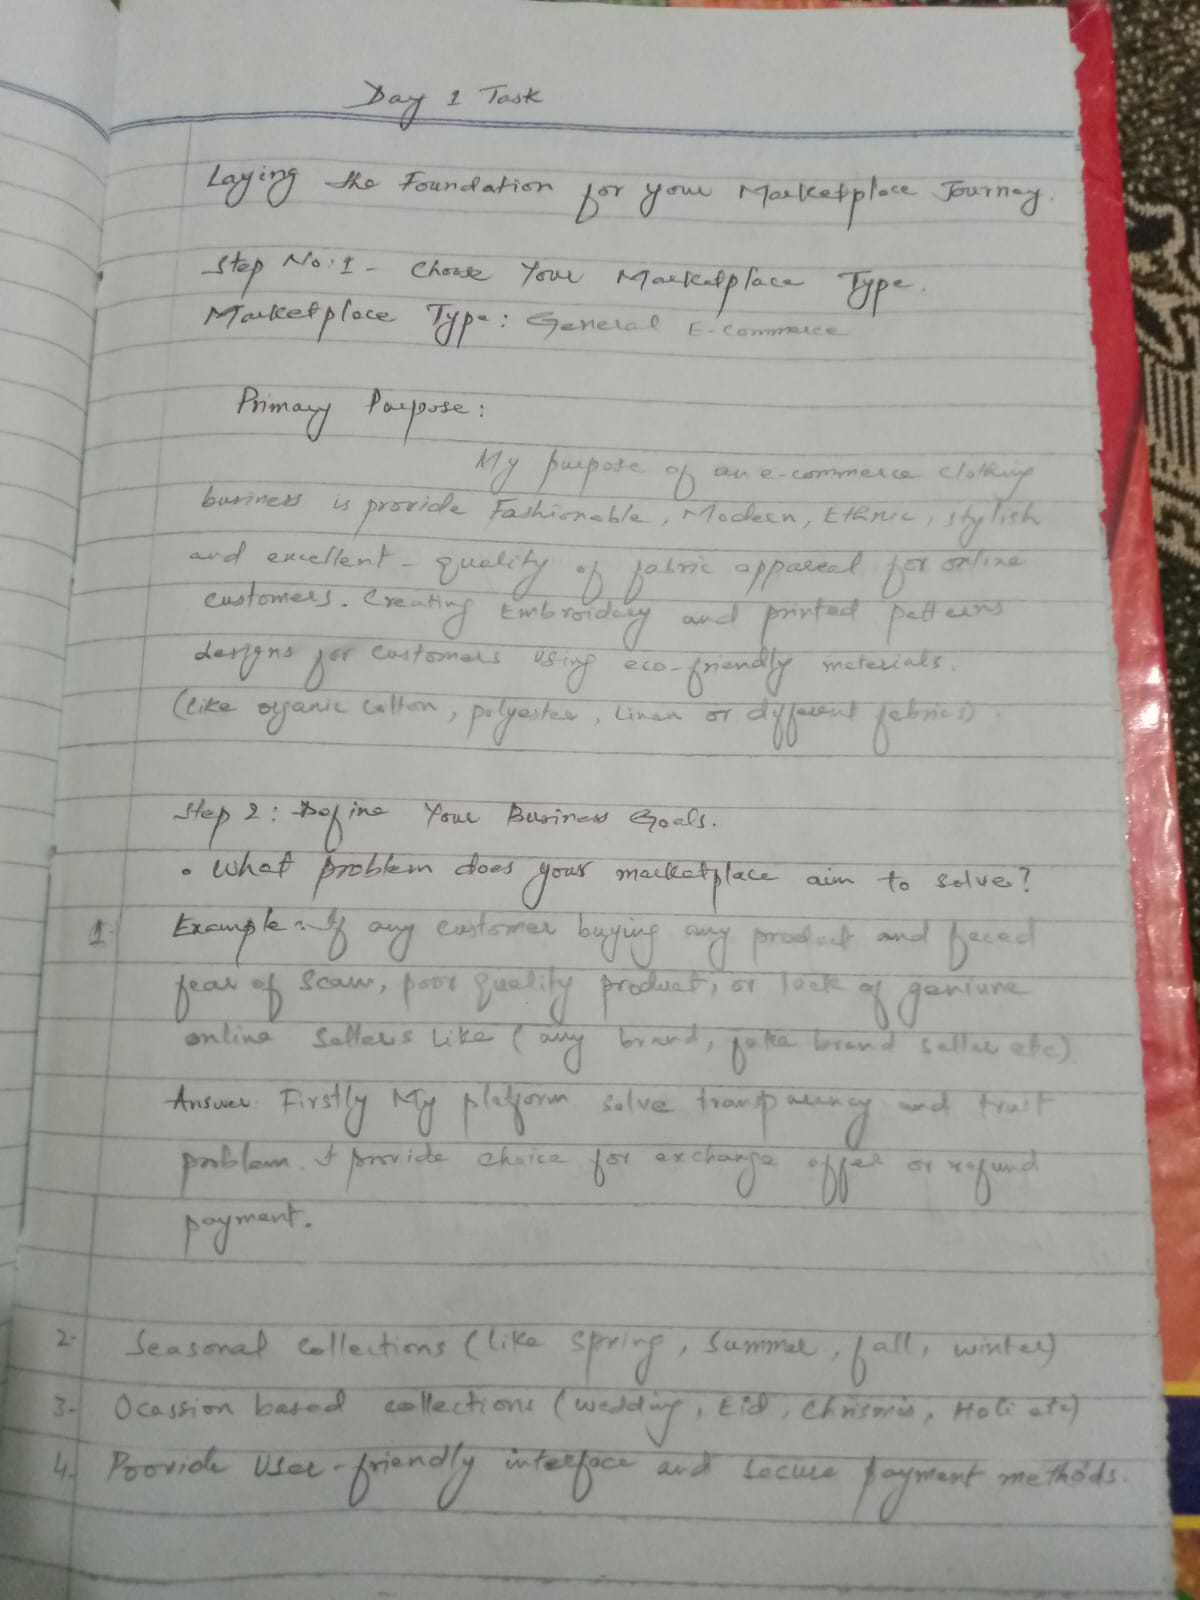 Day 1 Task
Laying the Foundation for your Marketplace Journey.
Step No:1 - Choose Your Marketplace Type.
Marketplace Type: General E-commerce
Primary Purpose:
My purpose of an e-commerce clothing
business is provide Fashionable, Modern, Ethnic, stylish
and excellent - quality of fabric appareal for online
customers. Creating Embroidary and printed patterns
designs for customers using eco-friendly materials.
(like organic cotton, polyester, Linen or different fabrics).
Step 2: Define Your Business Goals.
• What problem does your marketplace aim to solve?
1- Example: If any customer buying any product and faced
fear of scam, poor quality product, or lack of geniune
online Sellers Like (any brand, fake brand seller etc).
Answer: Firstly My platform solve transparency and trust
problem. I provide choice for exchange offer or refund
payment.
2- Seasonal Collections (like Spring, Summer, fall, winter)
3- Ocassion based collections (wedding, Eid, Chrismis, Holi etc)
4- Provide User-friendly interface and secure payment methods.